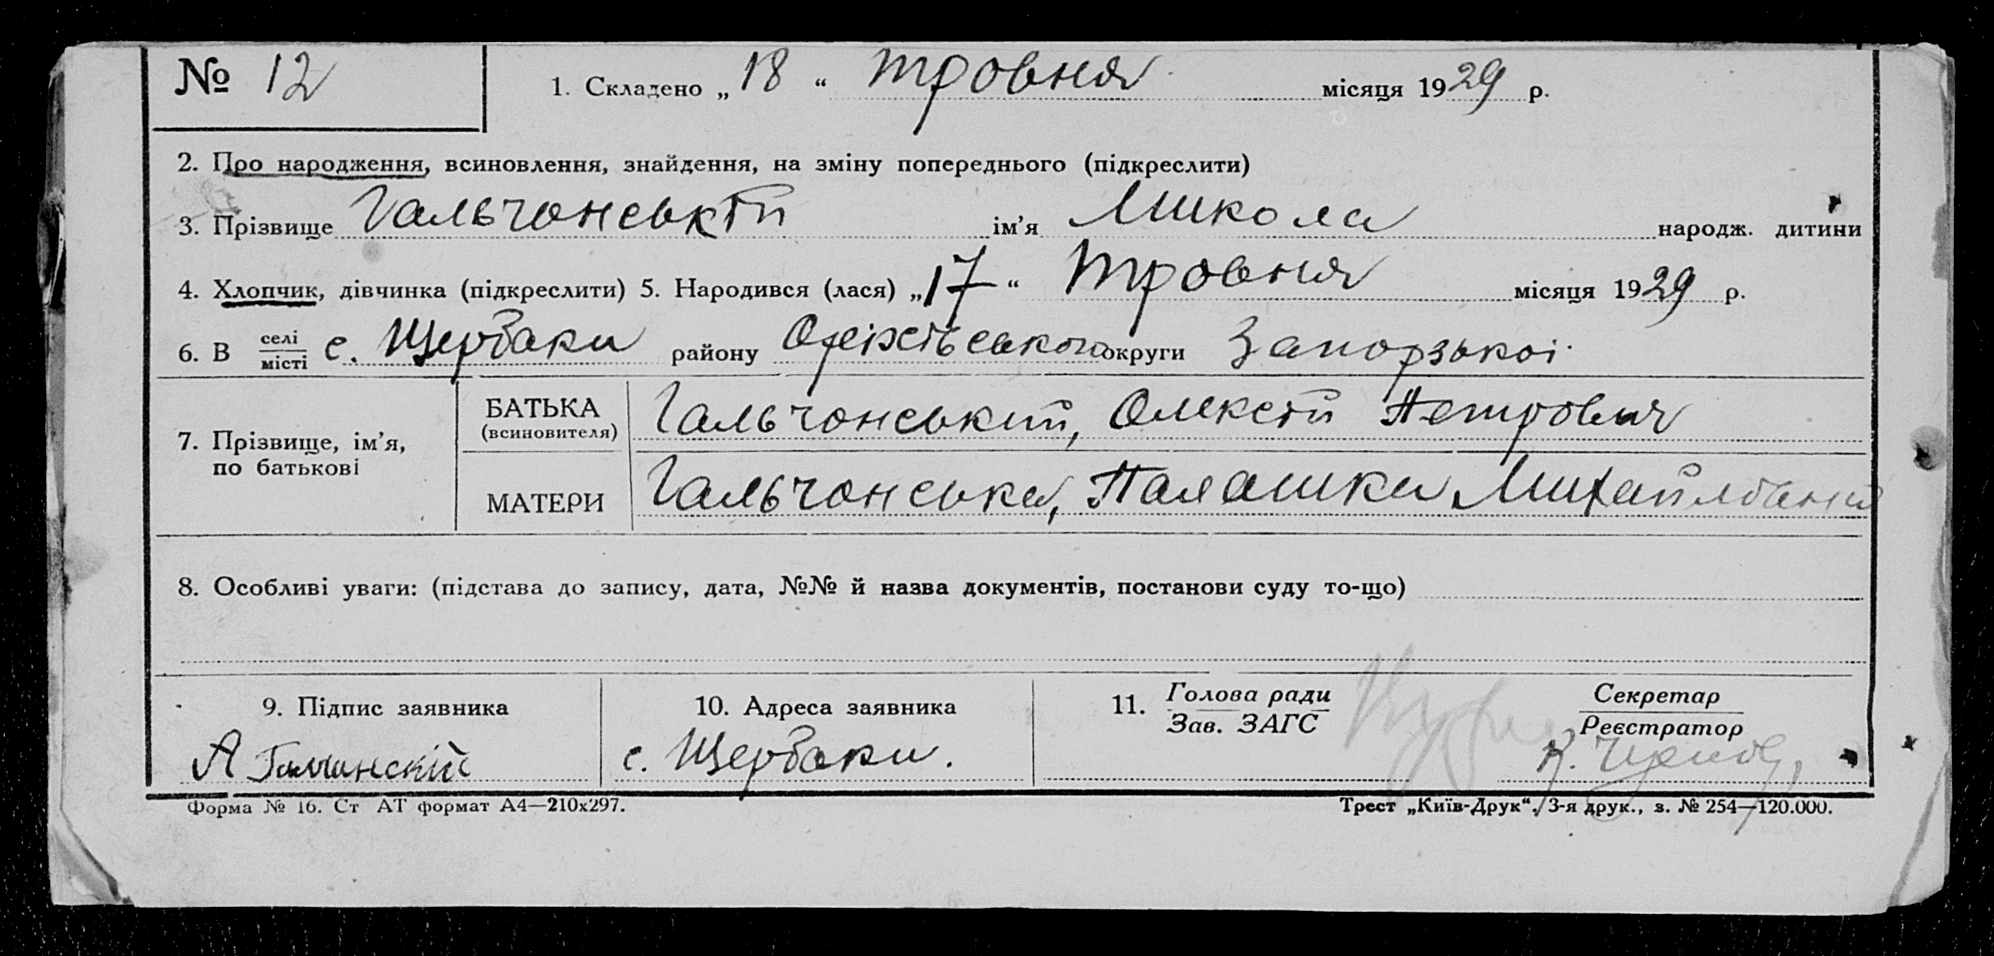 № 12 1. Складено „ 18 “ травня місяця 1929 р.
2. Про народження, всиновлення, знайдення, на зміну попереднього (підкреслити)
3. Прізвище Гальчонський ім’я Микола народж. дитини
4. Хлопчик, дівчинка (підкреслити) 5. Народився (лася) „ 17 “ травня місяця 1929 р.
6. В селі/місті с. Щербаки району Оріхівського округи Запорзької
7. Прізвище, ім’я, по батькові
БАТЬКА (всиновителя) Гальчонський, Олексій Петрович
МАТЕРИ Гальчонська, Палашка Михайловна
8. Особливі уваги: (підстава до запису, дата, №№ й назва документів, постанови суду то-що)
9. Підпис заявника 10. Адреса заявника 11. Голова ради/Зав. ЗАГС Секретар/Реєстратор
А с. Щербаки.
Форма № 16. Ст АТ формат А4—210х297. Трест „Київ-Друк“, 3-я друк., з. № 254—120.000.